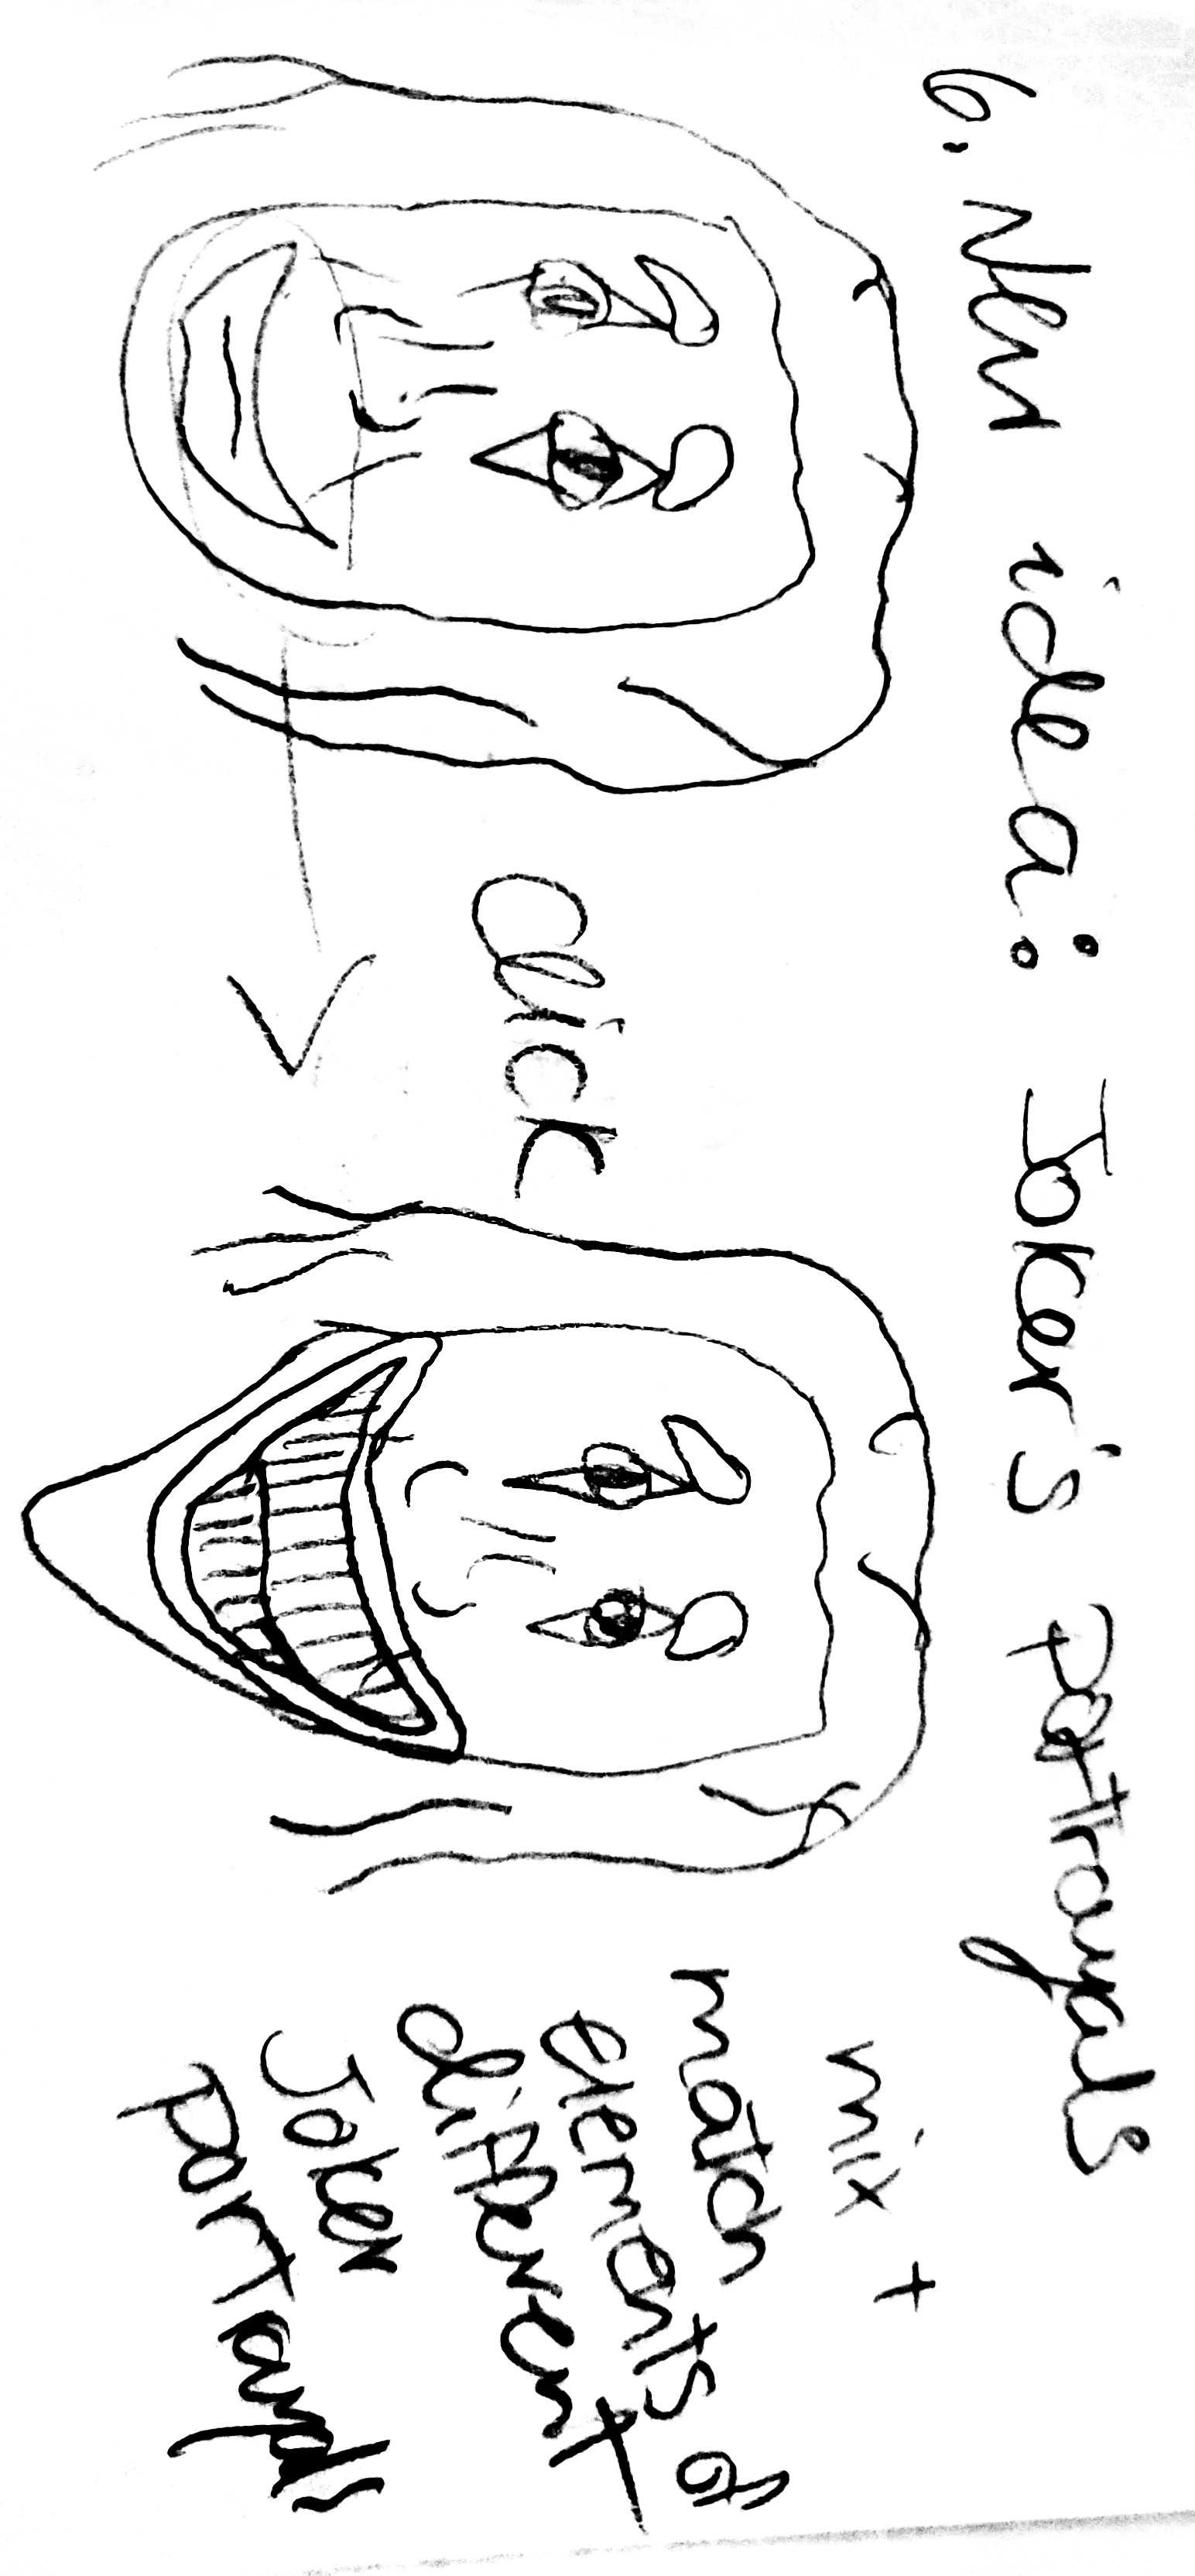 6. New idea: Joker's portrayals
click
mix +
match
elements of
different
Joker
portrayals